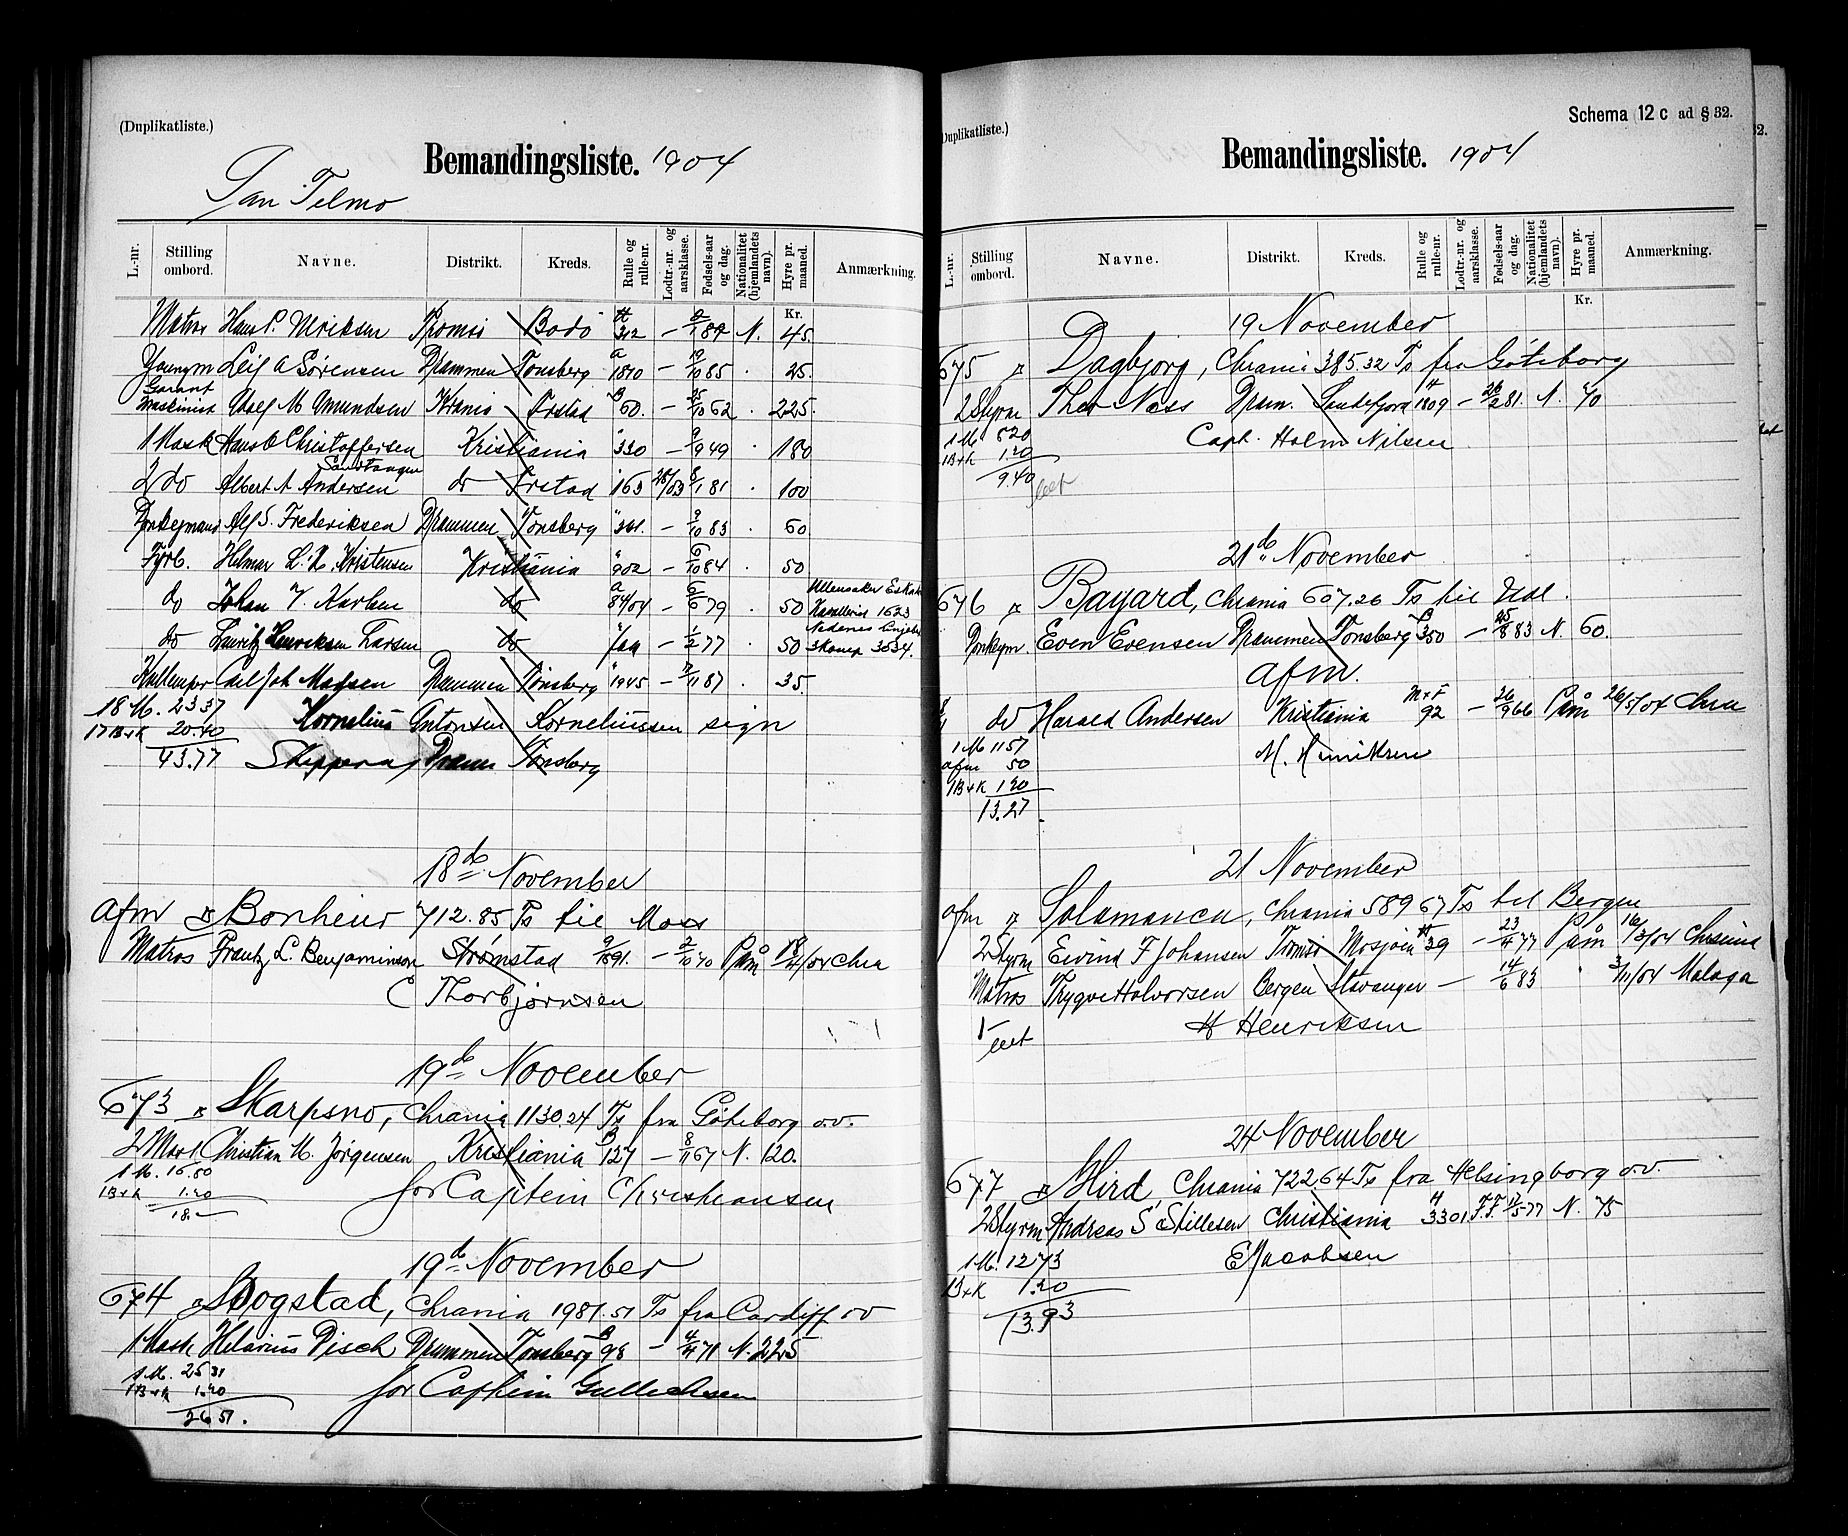 (Duplikatliste.)
Bemandingsliste. 1904
San Telmo
L.-nr. Stilling ombord. Navne. Distrikt. Kreds. Rulle og rulle-nr. Lodtr.-nr. og aarsklasse. Fødsels-aar og dag. Nationalitet (hjemlandets navn). Hyre pr. maaned. Anmærkning.
Kr.
Matros Hans P. Ulriksen Tromsø Bodö 312 — 1 N. 45.
Youngm Leif A Sørensen Drammen Tønsberg 1810 — 19/10 85 . 25.
Garant Maskinist Adolf M Amundsen Krania Örstad 60. — 25/10 62 . 225.
1 Mask Hans O Christoffersen Kristiania 330 — 9/9 49 . 180
Sandtangen
2 do Albert A Andersen do Örstad 163 28/03 8/1 81 . 100
Donkeymand Alf S. Frederiksen Drammen Tønsberg — 9/10 83 . 60
Fyrb. Hilmar L. Kristensen Kristiania 902 — 6/10 84 . 50
do Johan Karlsen do 84/04 — 6/6 79 . 50 Ullensaker
do Lauritz Henriksen Larsen do — 1/2 77 . 50 Nedenes 3634.
Kullemper Axel Joh Madsen Drammen Tønsberg 1945 — 7/11 87 . 35.
18 M. 23 37 Kornelius Antonsen Korneliussen sign
17 B+K 20.40 Skipperu, Dram Tønsberg
43.77
18 de November
afm Bonheur 712.85 Ts til Moss
Matros Frantz L. Benjaminson Strømstad — 2/10 70 Paam /04 Chra
C Thorbjørnsen
19 de November
673 Skarpsno, Chrania 1130 24 Ts fra Göteborg o.v.
2 Mask Christian M. Jørgensen Kristiania 127 — 8/11 67 N. 120.
1 M. 16.80 for Captein Christiansen
1 B+K 1.20
18.—
19 de November
674 Bogstad, Chrania 1981.51 Ts fra Cardiff o v
1 Mask Hilarius Disch Drammen Tønsberg 98 — 4/11 71 N. 225
1 M. 25 31 for Captein Gullichsen
1 B+K 1.20
26 51.
Duplikatliste.)
Schema 12 c ad § 32.
Bemandingsliste. 1904
L.-nr. Stilling ombord. Navne. Distrikt. Kreds. Rulle og rulle-nr. Lodtr.-nr. og aarsklasse. Fødsels-aar og dag. Nationalitet (hjemlandets navn). Hyre pr. maaned. Anmærkning.
Kr.
19 November
675 Dagbjorg, Chrania 385.32 Ts fra Göteborg
2 Styrm Thor Ness Dram. Sandefjord 1809 — 26/2 81. N. 70
1 M 820 Capt. Holm Nilsen
1 B+K 1.20
9.40
21 de November
676 Bayard, Chrania 607.26 Ts til Udl.
Donkeym. Even Evensen Drammen Tønsberg 350 — 25/8 83 N. 60.
afm.
do Harald Andersen Kristiania M+F 92 — 26/9 66 Paam 26/5/04 Chra
1 M 11 57 M. Henriksen
afm 50
1 B+K 1 20
13.27
21 November
afm Salamanca, Chrania 589 67 Ts til Bergen
2 Styrm Eivind F Johansen Tromsø Mosjøen 39 — 23/11 77 Paam 16/3/04 Chrania
Matros Trygve Halvorsen Bergen Stavanger — 14/6 83 " 3/11/04 Malaga
H Henriksen
24 November
677 Hird, Chrania 722,64 Ts fra Helsingborg o.v.
2 Styrm Andreas S. Stillesen Christiania 3301 F.F. 17/5 77 N. 75
1 M. 12 73 E Jacobsen
1 B+K 1.20
13.93